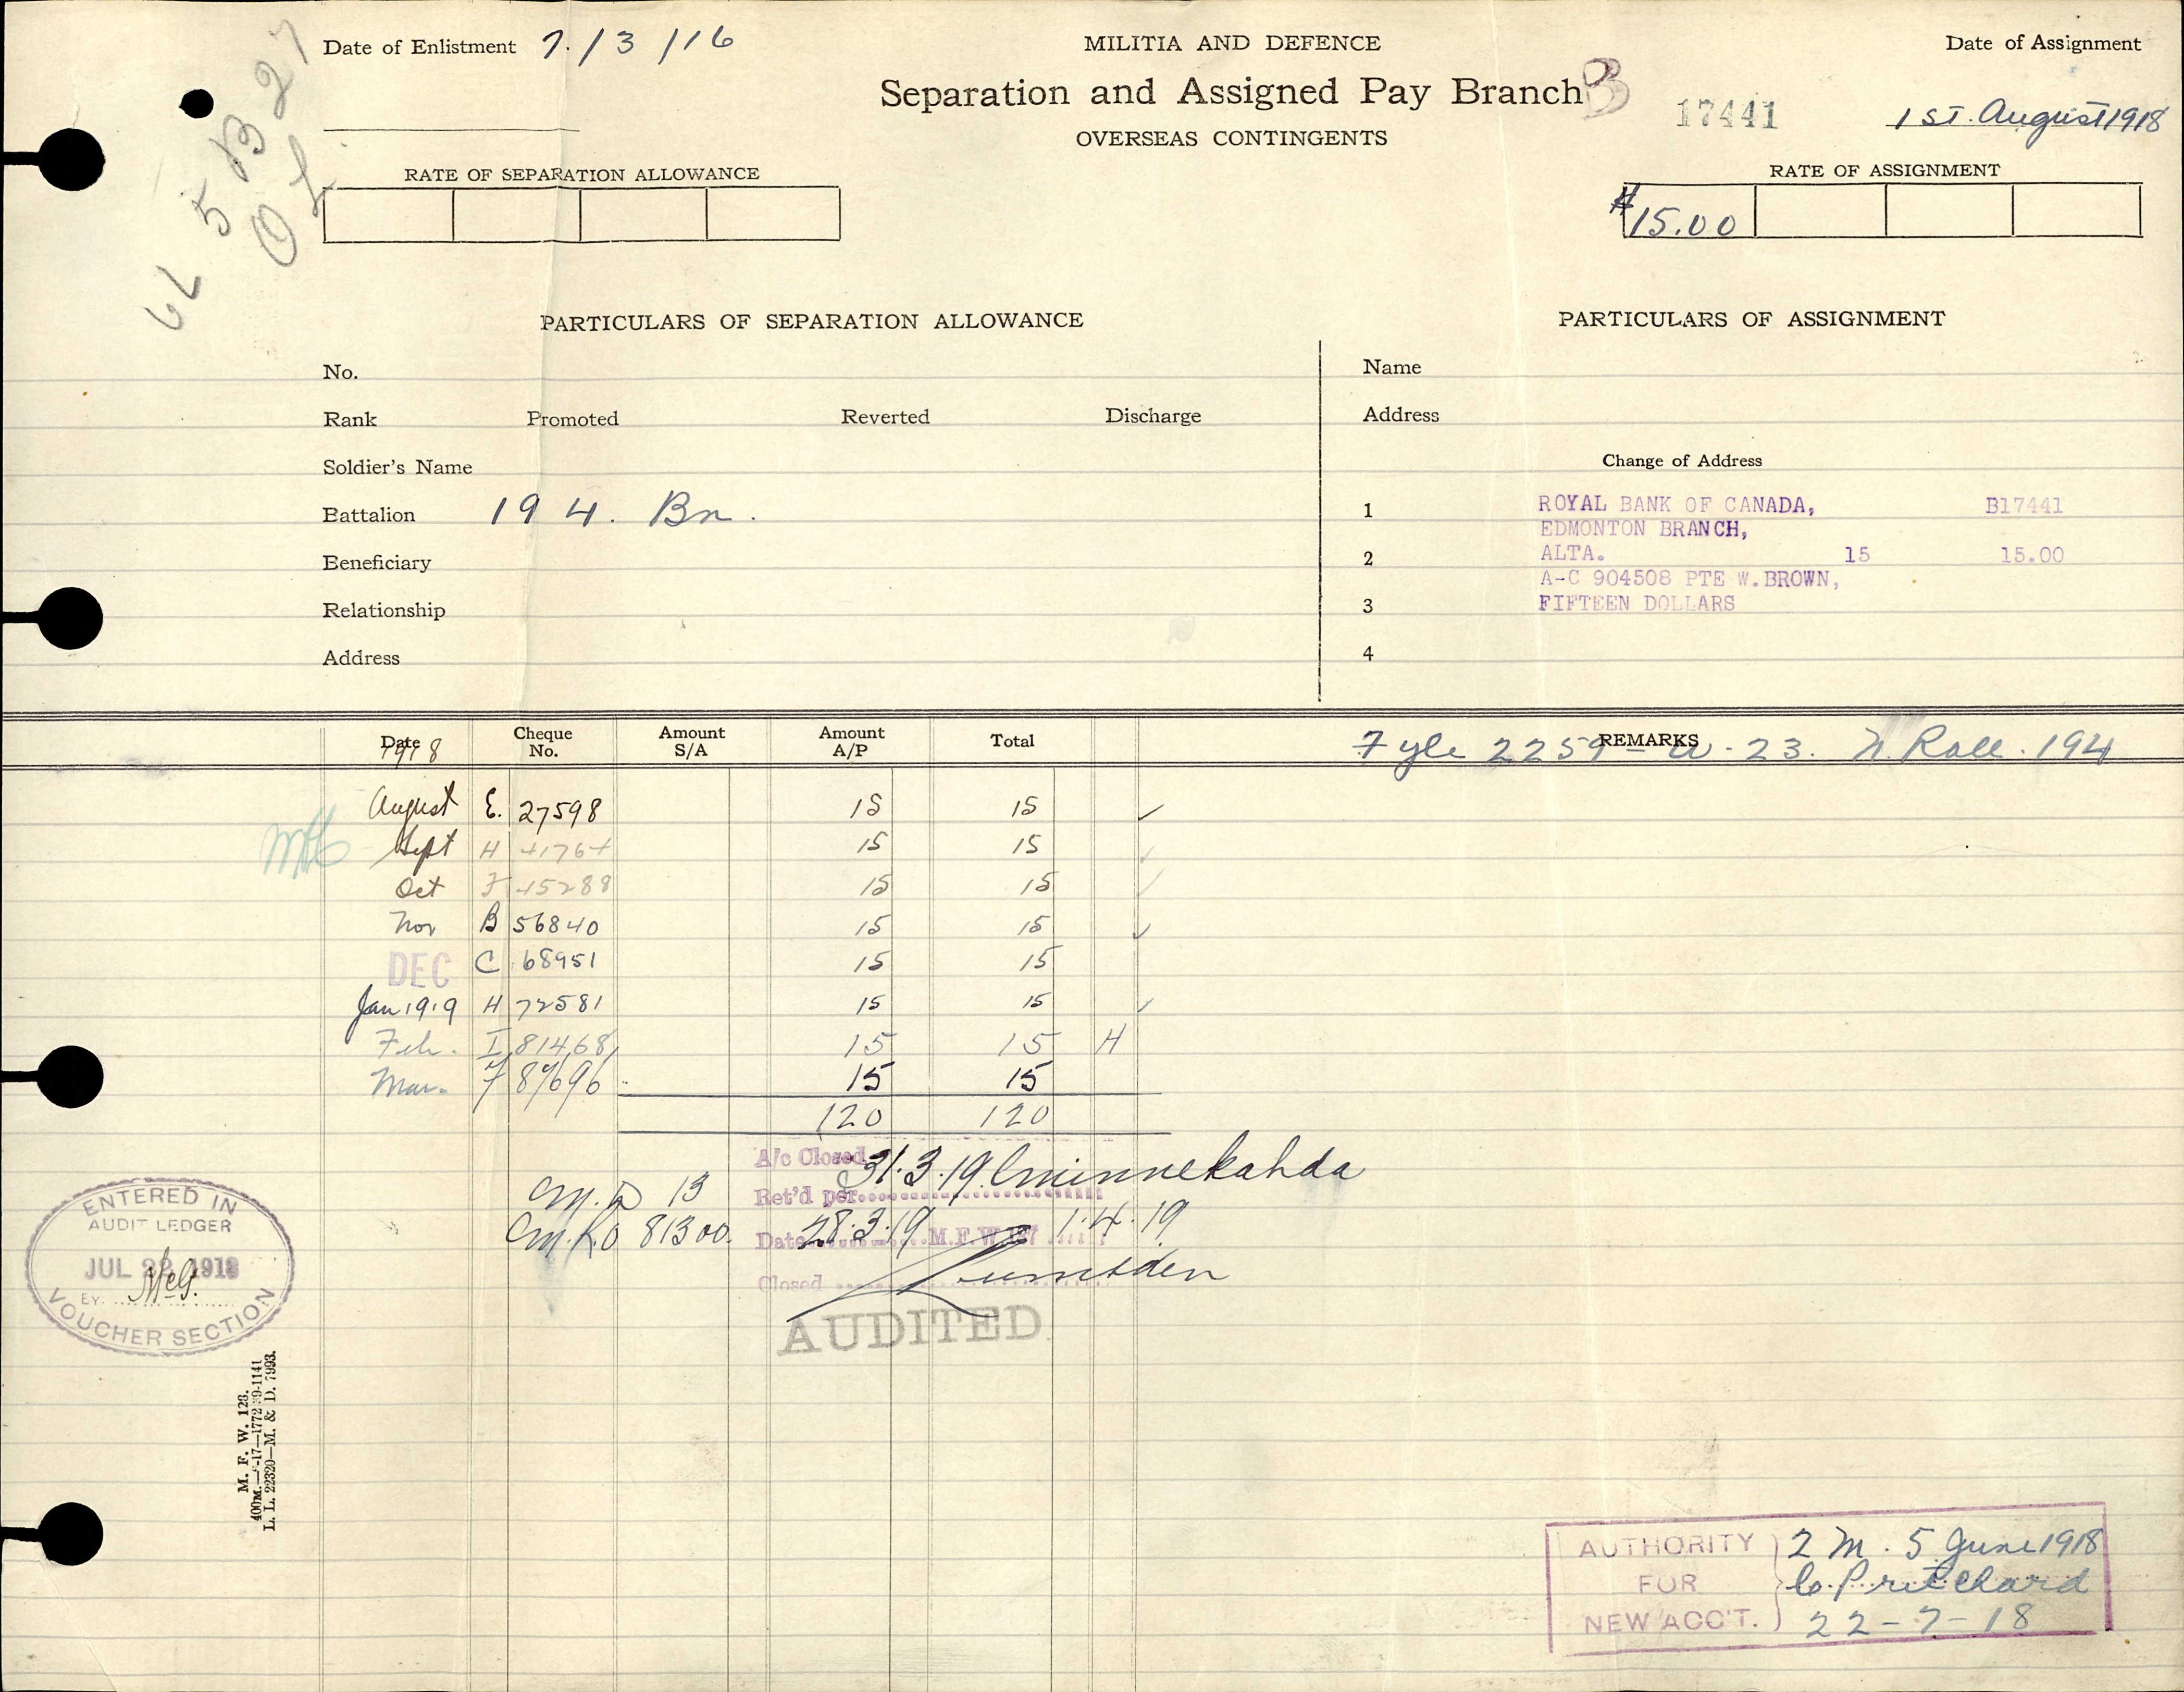 Date of Enlistment 7./3/16
MILITIA AND DEFENCE
Date of Assignment
Separation and Assigned Pay Branch B
17441
1st. August 1918
OVERSEAS CONTINGENTS
RATE OF SEPARATION ALLOWANCE
RATE OF ASSIGNMENT
$15.00
PARTICULARS OF SEPARATION ALLOWANCE
PARTICULARS OF ASSIGNMENT
No.
Name
Rank Promoted Reverted Discharge
Address
Soldier's Name
Change of Address
Battalion 194. Bn.
1 ROYAL BANK OF CANADA, B17441
EDMONTON BRANCH,
Beneficiary
2 ALTA. 15 15.00
A-C 904508 PTE W.BROWN,
Relationship
3 FIFTEEN DOLLARS
Address
4
Date Cheque No. Amount S/A Amount A/P Total REMARKS
1918
Fyle 2259-W-23. N. Roll. 194
August E. 27598 15 15
Sept H 41764 15 15
Oct F 45288 15 15
Nov B 56840 15 15
DEC C 68951 15 15
Jan 1919 H 72581 15 15
Feb. I 81468 15 15 H
Mar. F 87696 15 15
120 120
A/c Closed 31.3.19. Minnekahda
M.D 13 Ret'd per
M.R.O 81300. Date 28.3.19 M.F.W. 1.4.19
Closed Lumsden
AUDITED
ENTERED IN
AUDIT LEDGER
JUL 22 1918
BY
VOUCHER SECTION
M. F. W. 128.
L. L. 22320—M. & D. 7993.
AUTHORITY 2 M. 5 June 1918
FOR C. Pritchard
NEW ACC'T. 22-7-18